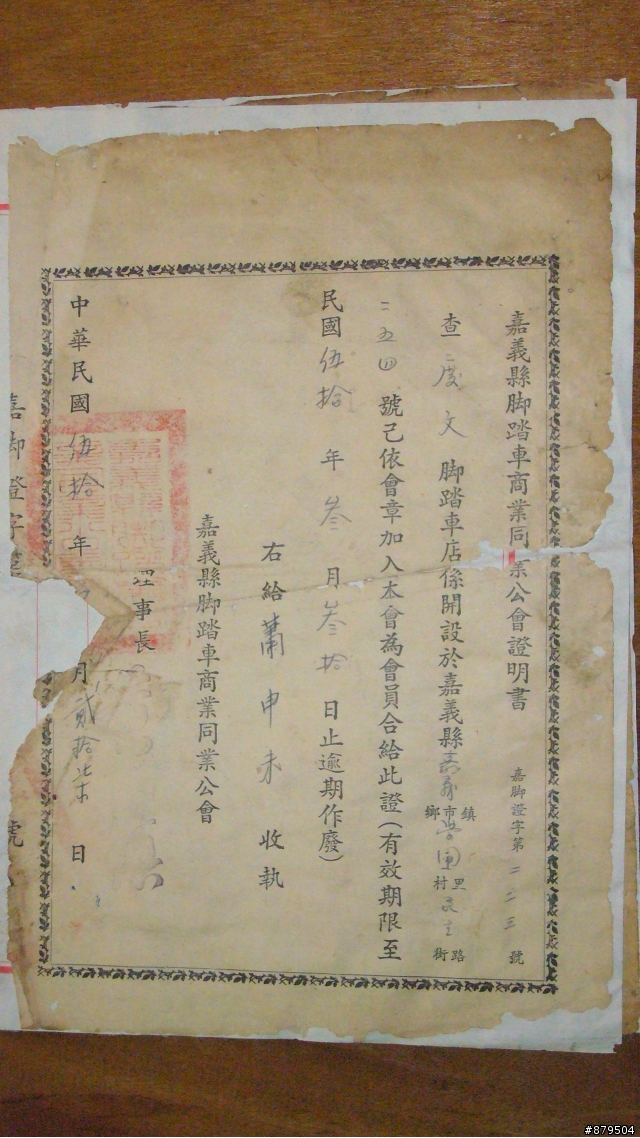 嘉義縣脚踏車商業同業公會證明書
嘉脚證字第二二三號
查 度文 脚踏車店係開設於嘉義縣嘉義鎮市鄉 營團里村民生路街
二五四 號己依會章加入本會為會員合給此證（有效期限至
民國伍拾年叁月叁拾日止逾期作廢）
右給 蕭申未 收執
嘉義縣脚踏車商業同業公會
理事長
中華民國伍拾年 月貳拾柒日
嘉脚證字第
號
#879504